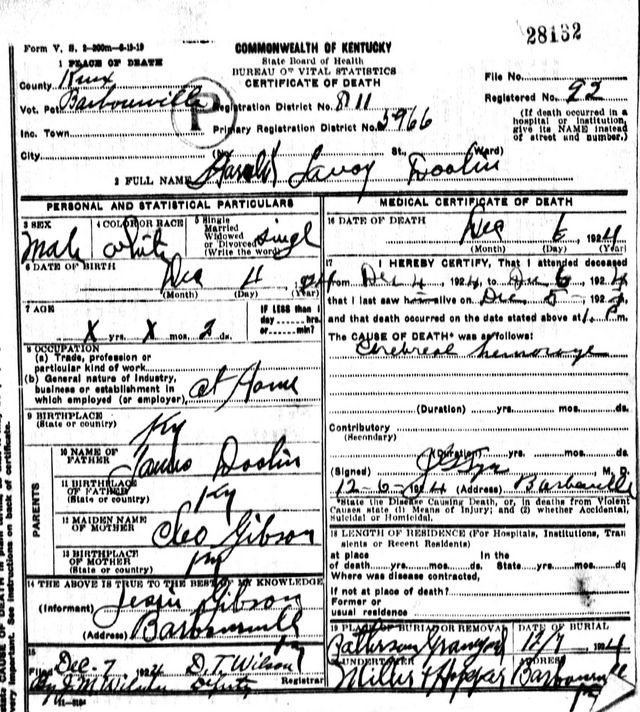 28132
Form V. S. 2-200m-6-19-19
COMMONWEALTH OF KENTUCKY
State Board of Health
BUREAU OF VITAL STATISTICS
CERTIFICATE OF DEATH
1 PLACE OF DEATH
County Knox
Vot. Pct Barbourville
Inc. Town
City
P
Registration District No. 811
Primary Registration District No. 5966
File No.
Registered No. 92
(If death occurred in a hospital or institution, give its NAME instead of street and number.)
St., Ward)
2 FULL NAME Harold Lavoy Doolin
PERSONAL AND STATISTICAL PARTICULARS
3 SEX
Male
4 COLOR OR RACE
White
5 Single
Married
Widowed
or Divorced
(Write the word)
Singl
6 DATE OF BIRTH
Dec 4 1924
(Month) (Day) (Year)
7 AGE
X yrs. X mos. 2 ds.
IF LESS than 1
day ---- hrs.
or ---- min?
8 OCCUPATION
(a) Trade, profession or
particular kind of work
(b) General nature of industry,
business or establishment in
which employed (or employer)
at Home
9 BIRTHPLACE
(State or country)
Ky
PARENTS
10 NAME OF
FATHER
Doolin
11 BIRTHPLACE
OF FATHER
(State or country)
Ky
12 MAIDEN NAME
OF MOTHER
Cleo Gibson
13 BIRTHPLACE
OF MOTHER
(State or country)
Ky
14 THE ABOVE IS TRUE TO THE BEST OF MY KNOWLEDGE
(Informant) Jessie Gibson
(Address) Barbourville
Ky
15
Filed Dec-7 1924 D.T. Wilson
Registrar
By J.M. Deputy
MEDICAL CERTIFICATE OF DEATH
16 DATE OF DEATH
Dec 6, 1924
(Month) (Day) (Year)
17 I HEREBY CERTIFY, That I attended deceased
from Dec 4, 1924, to Dec 6, 1924
that I last saw him alive on Dec 5- 192
and that death occurred on the date stated above at 1. P. m.
The CAUSE OF DEATH* was as follows:
Cerebreal hemorage
(Duration) yrs. mos. ds.
Contributory
(Secondary)
(Duration) yrs. mos. ds.
(Signed) M. D.
12-6-1924 (Address) Barbourville
*State the Disease Causing Death, or, in deaths from Violent
Causes state (1) Means of Injury; and (2) whether Accidental,
Suicidal or Homicidal.
18 LENGTH OF RESIDENCE (For Hospitals, Institutions, Tran
sients or Recent Residents)
at place In the
of death yrs. mos. ds. State, yrs. mos. ds
Where was disease contracted,
if not at place of death?
Former or
usual residence
19 PLACE OF BURIAL OR REMOVAL
Patterson Graveyard
DATE OF BURIAL
12/7 1924
20 UNDERTAKER
Miller & Hopper
ADDRESS
Barbourville
Ky